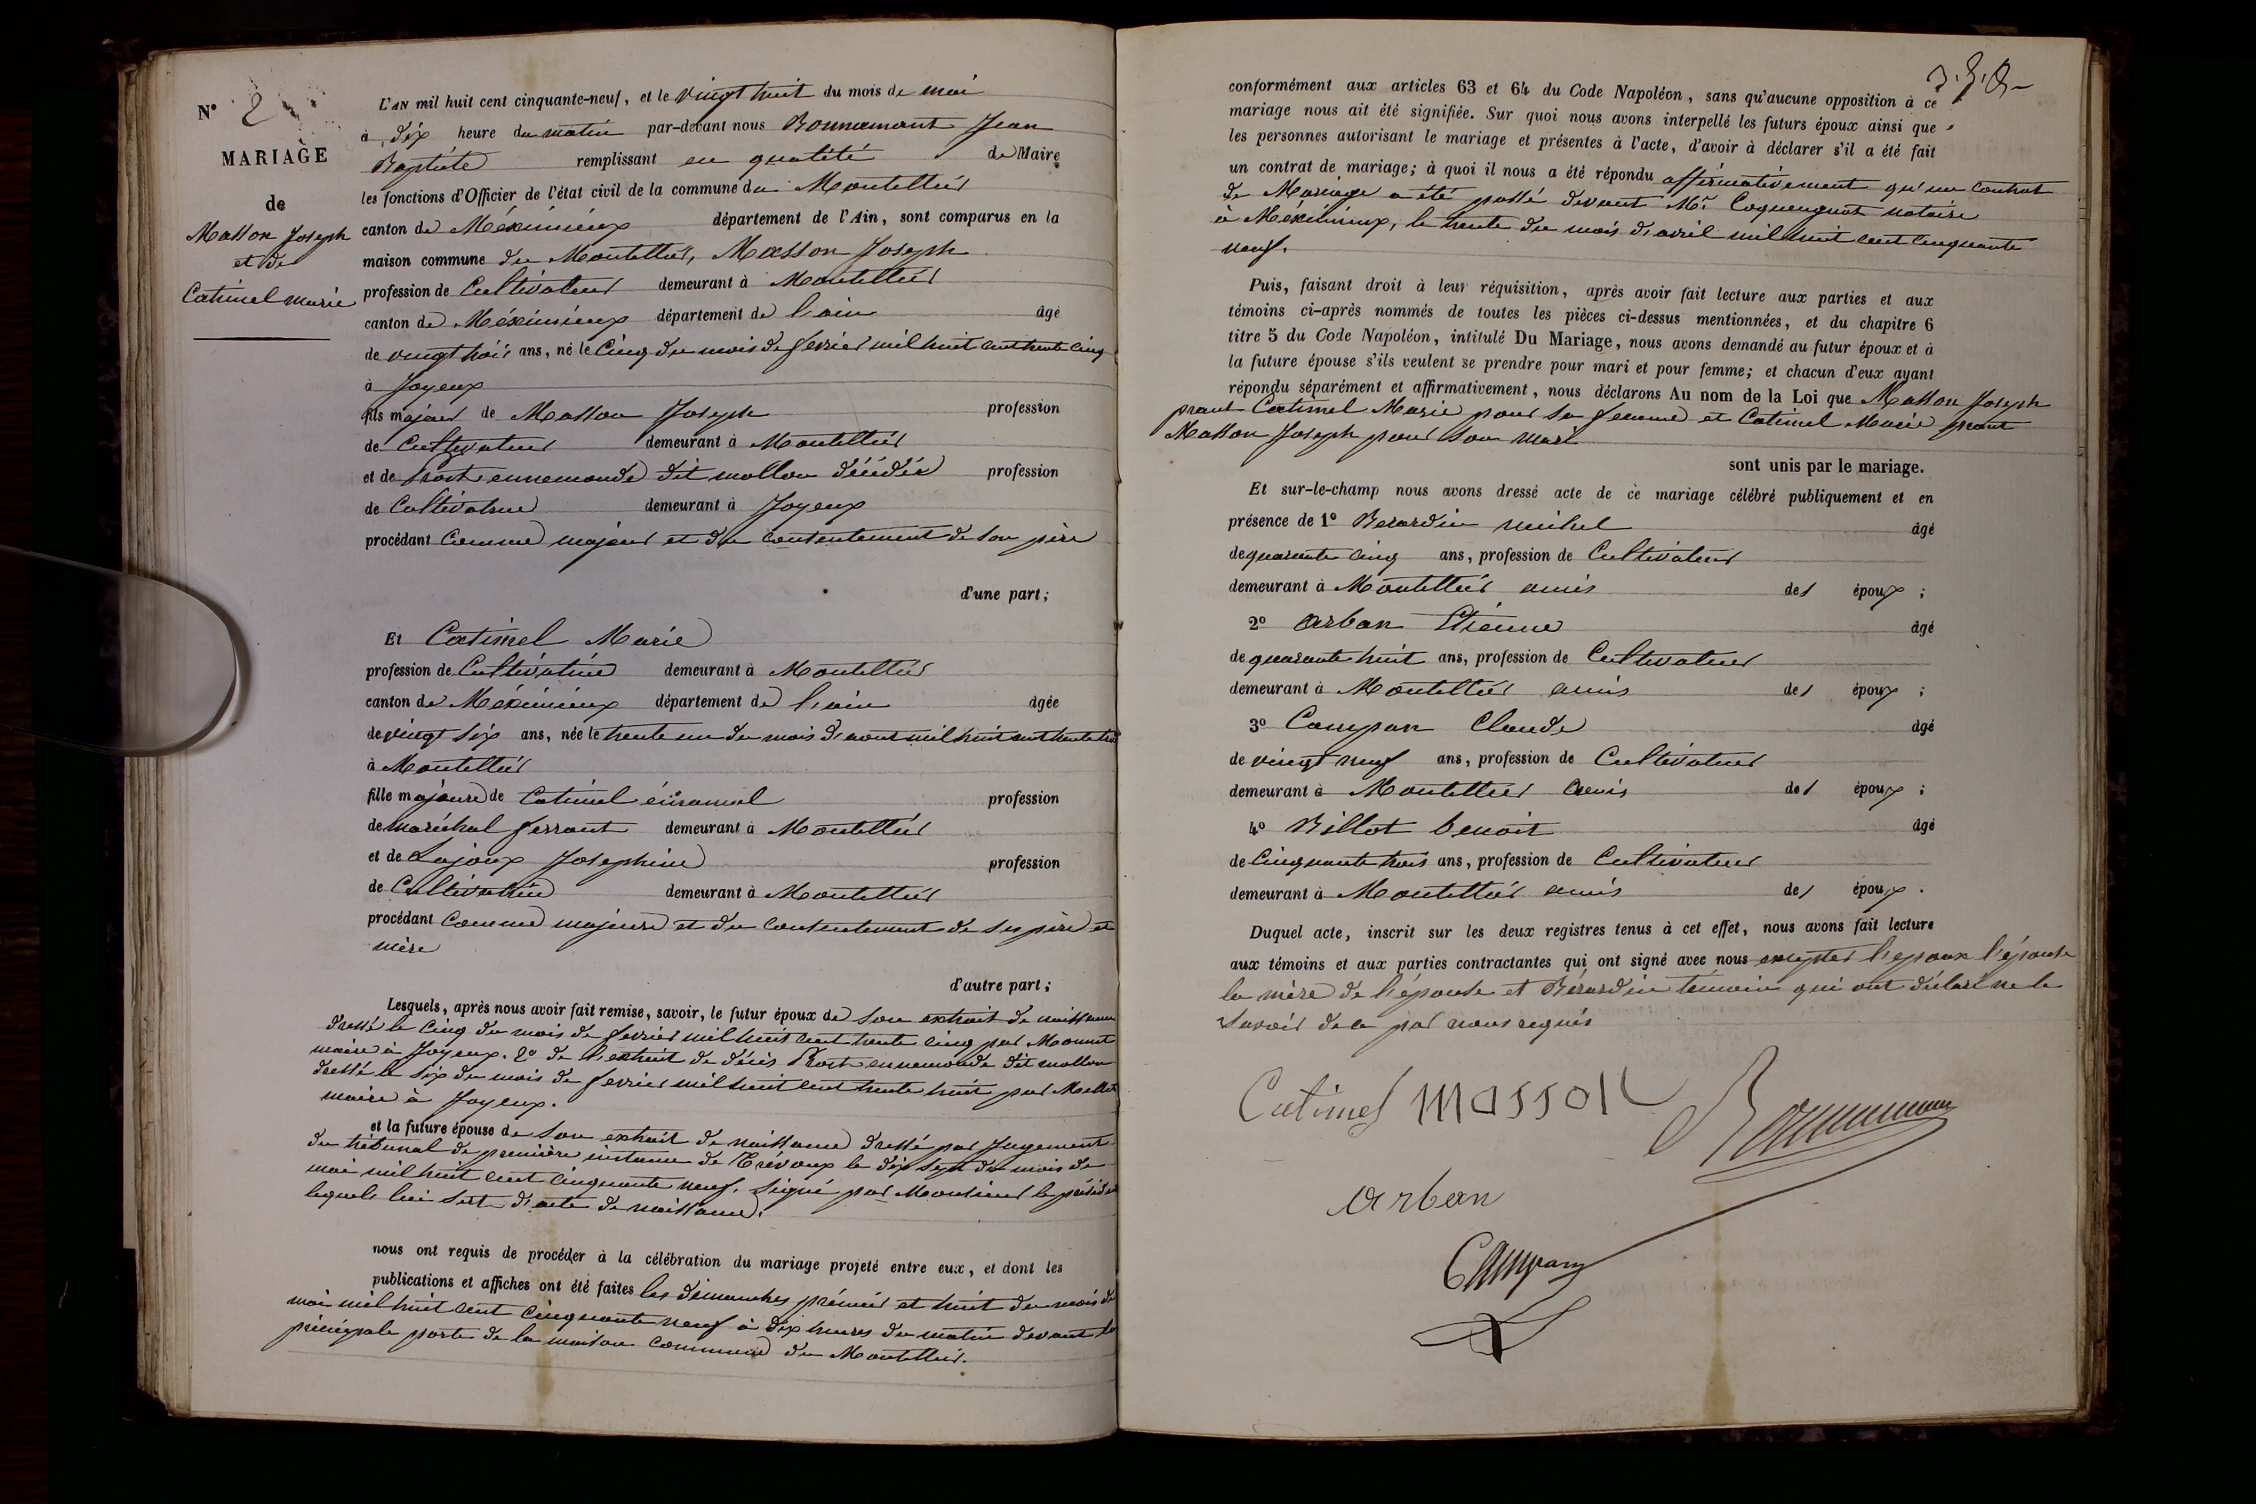 N° 2
MARIAGE
de
Masson Joseph
et de
Catimel marie
L'AN mil huit cent cinquante-neuf, et le vingt huit du mois de mai
à dix heure du matin par-devant nous Bonnamant Jean
Baptiste remplissant en qualité de Maire
les fonctions d'Officier de l'état civil de la commune du Montellier
canton de Méximieux département de l'Ain, sont comparus en la
maison commune du Montellier, Masson Joseph
profession de Cultivateur demeurant à Montellier
canton de Méximieux département de l'ain âgé
de vingt trois ans, né le Cinq du mois de fevrier mil huit cent trente cinq
à Joyeux
fils majeur de Masson Joseph profession
de Cultivateur demeurant à Montellier
et de Prost ennemonde dit mollon décédée profession
de Cultivatrice demeurant à Joyeux
procédant Comme majeur et du consentement de son père
d'une part;
Et Catimel Marie
profession de Cultivatrice demeurant à Montellier
canton de Méximieux département de l'ain âgée
de vingt six ans, née le trente un du mois d'aout mil huit cent trente
à Montellier
fille majeure de Catimel profession
de maréchal ferrant demeurant à Montellier
et de Lajoux Josephine profession
de Cultivatrice demeurant à Montellier
procédant Comme majeure et du consentement de ses père et
mère
d'autre part;
Lesquels, après nous avoir fait remise, savoir, le futur époux de son extrait de naissance
dressé le cinq du mois de fevrier mil huit cent trente cinq par
maire à Joyeux. 2° de l'extrait de décès Prost ennemonde dit mollon
dressé le six du mois de fevrier mil huit cent trente huit par
maire à Joyeux.
et la future épouse de son extrait de naissance dressé par Jugement
du tribunal de première instance de Trévoux le dix sept du mois de
mai mil huit cent cinquante neuf. signé par Monsieur le président
lequel lui sert d'acte de naissance.
nous ont requis de procéder à la célébration du mariage projeté entre eux, et dont les
publications et affiches ont été faites les dimanches prémier et huit du mois de
mai mil huit cent cinquante neuf à dix heures du matin devant la
principale porte de la maison commune du Montellier.
conformément aux articles 63 et 64 du Code Napoléon, sans qu'aucune opposition à ce
mariage nous ait été signifiée. Sur quoi nous avons interpellé les futurs époux ainsi que
les personnes autorisant le mariage et présentes à l'acte, d'avoir à déclarer s'il a été fait
un contrat de mariage; à quoi il nous a été répondu affirmativement qu'un contrat
de Mariage a été passé devant Mr. Coquengniot notaire
à Méximieux, le trente du mois d'avril mil huit cent cinquante
neuf.
Puis, faisant droit à leur réquisition, après avoir fait lecture aux parties et aux
témoins ci-après nommés de toutes les pièces ci-dessus mentionnées, et du chapitre 6
titre 5 du Code Napoléon, intitulé Du Mariage, nous avons demandé au futur époux et à
la future épouse s'ils veulent se prendre pour mari et pour femme; et chacun d'eux ayant
répondu séparément et affirmativement, nous déclarons Au nom de la Loi que Masson Joseph
prant Catimel Marie pour sa femme et Catimel Marie prant
Masson Joseph pour son mari
sont unis par le mariage.
Et sur-le-champ nous avons dressé acte de ce mariage célébré publiquement et en
présence de 1° Berardin michel âgé
de quarante cinq ans, profession de Cultivateur
demeurant à Montellier amis des époux;
2° Arban Etienne âgé
de quarante huit ans, profession de Cultivateur
demeurant à Montellier amis des époux;
3° Campan Claude âgé
de vingt neuf ans, profession de Cultivateur
demeurant à Montellier amis des époux;
4° Billot benoit âgé
de Cinquante trois ans, profession de Cultivateur
demeurant à Montellier amis des époux.
Duquel acte, inscrit sur les deux registres tenus à cet effet, nous avons fait lecture
aux témoins et aux parties contractantes qui ont signé avec nous excepter l'epoux l'épouse
la mère de l'épouse et Bérardin témoin qui ont déclaré ne le
savoir de ce par nous requis
Catimel masson Bonnamant
Arban
Campan